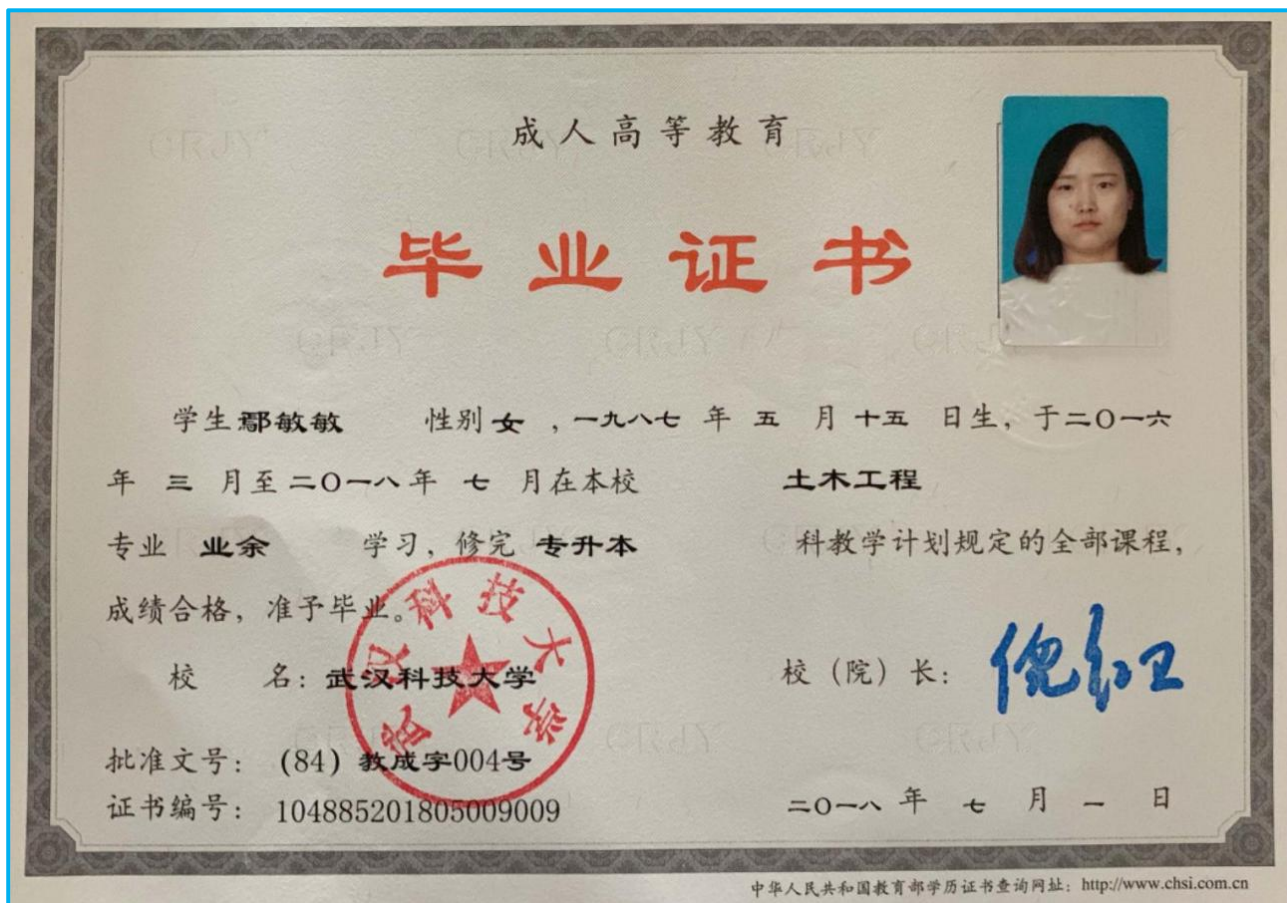 成人高等教育
毕业证书
学生鄢敏敏 性别女，一九八七 年 五 月 十五 日生，于二〇一六
年 三 月至二〇一八年 七 月在本校 土木工程
专业 业余 学习，修完 专升本 科教学计划规定的全部课程，
成绩合格，准予毕业。
校 名：武汉科技大学 校（院）长：倪红卫
武汉科技大学
批准文号：(84）教成字004号
证书编号：104885201805009009 二〇一八 年 七 月 一 日
中华人民共和国教育部学历证书查询网址：http://www.chsi.com.cn